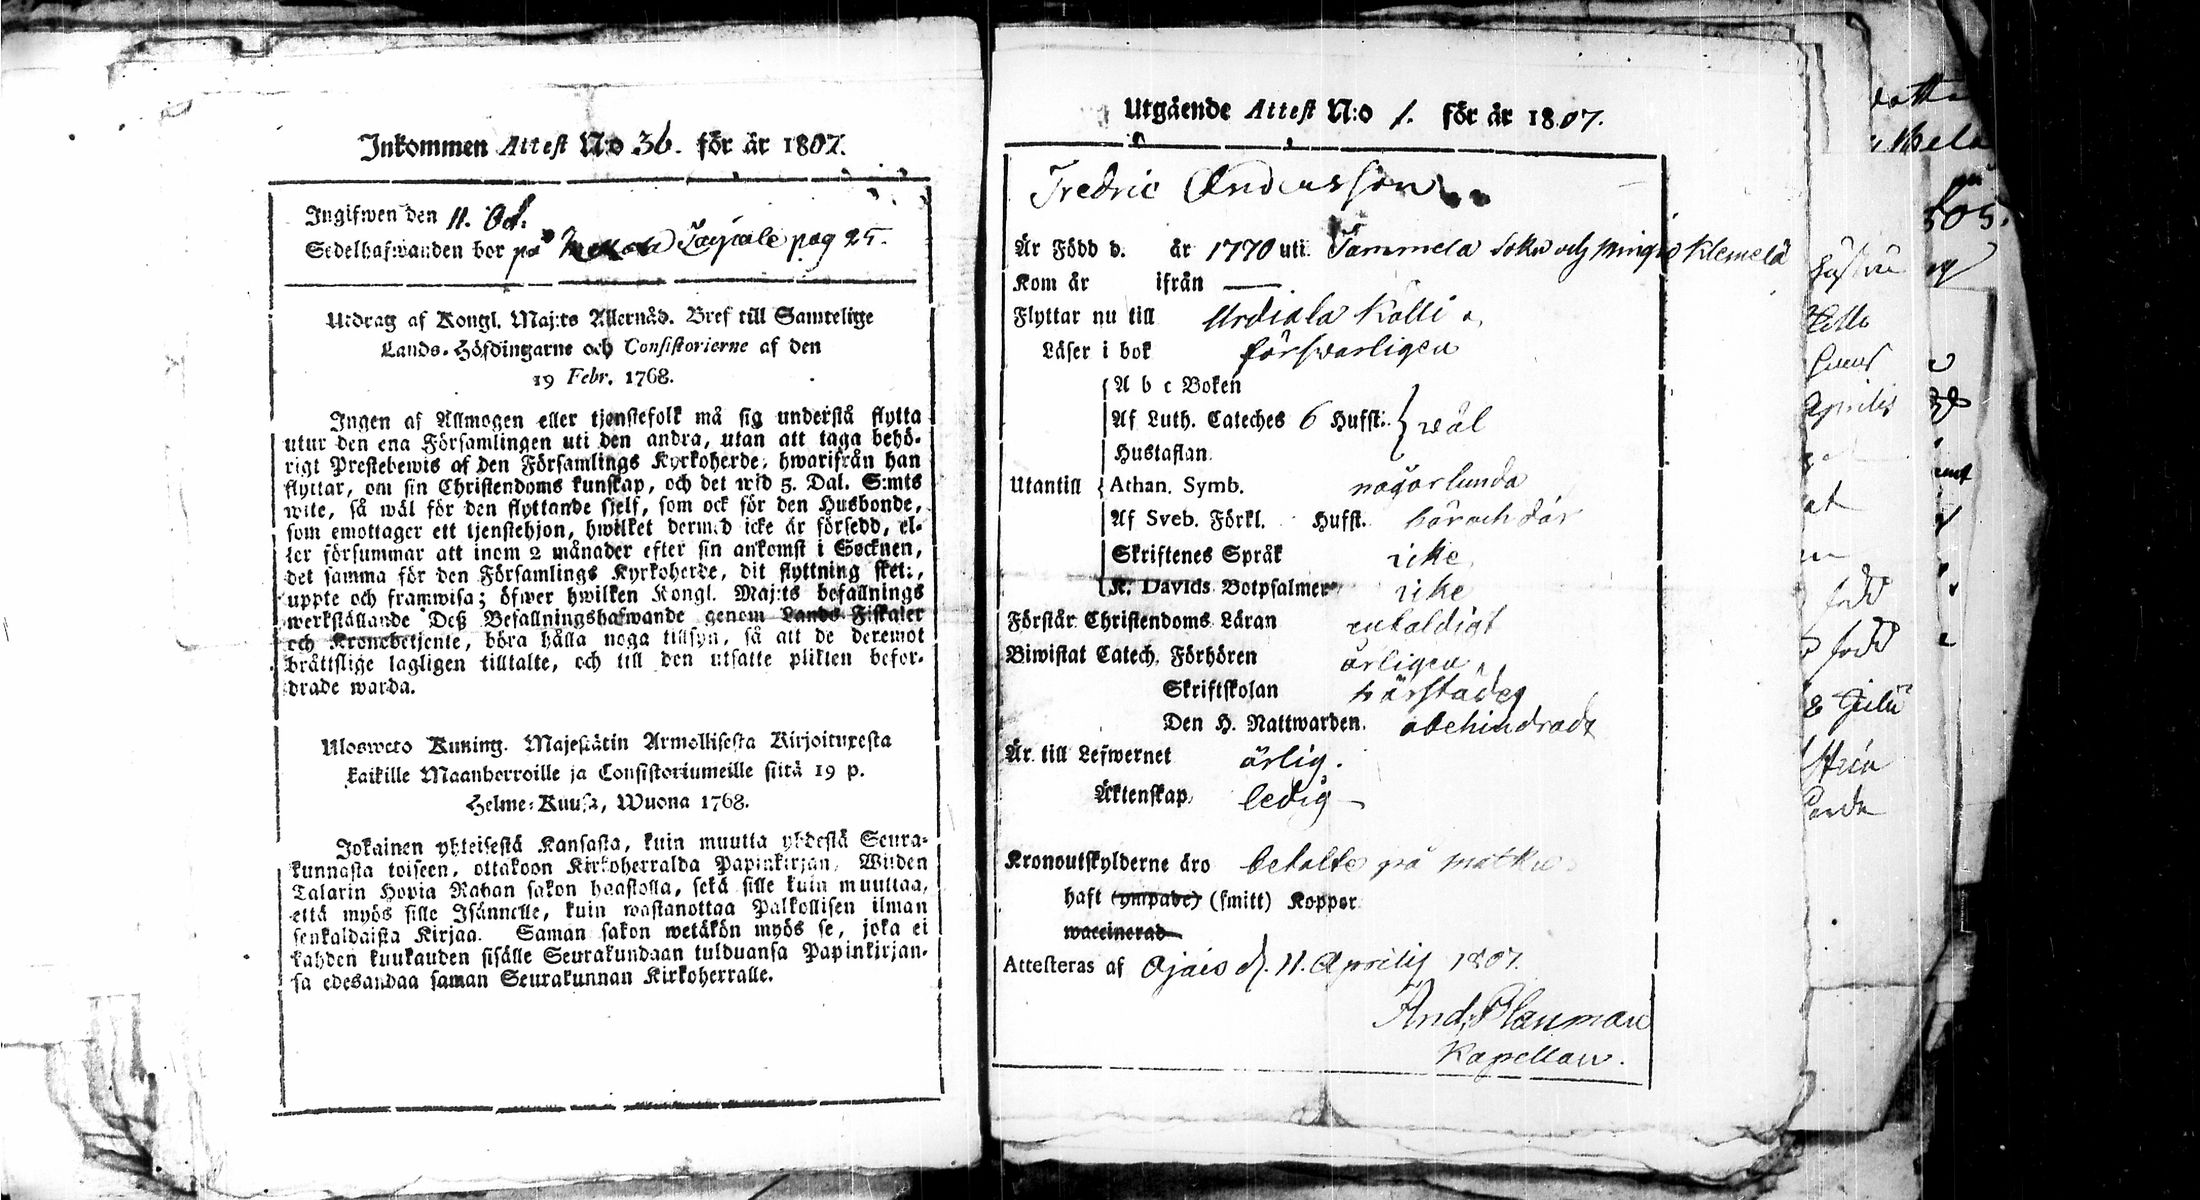 Inkommen Attest N:o 36. för år 1807.
Ingifwen den 11. Oct.
Sedelhafwanden bor på Taipale pag 25.
Utdrag af Kongl. Maj:ts Allernåd. Bref till Samtelige
Lands-Höfdingarne och Consistorierne af den
19 Febr. 1768.
Ingen af Allmogen eller tjenstefolk må sig understå flytta
utur den ena Församlingen uti den andra, utan att taga behö-
rigt Prestebewis af den Församlings Kyrkoherde, hwarifrån han
flyttar, om sin Christendoms kunskap, och det wid 5. Dal. S:mts
wite, så wäl för den flyttande sjelf, som ock för den Husbonde,
som emottager ett tjenstehjon, hwilket dermed icke är försedd, el-
ler försummar att inom 2 månader efter sin ankomst i Socknen,
det samma för den Församlings Kyrkoherde, dit flyttning sket:,
uppte och framwisa; öfwer hwilken Kongl. Maj:ts befallnings
werkställande Deß Befallningshafwande genom Lands-Fiskaler
och Kronobetjente, böra hålla noga tillsyn, så att de deremot
bråttslige lagligen tilltalte, och till den utsatte plikten befor-
drade warda.
Ulosweto Kuning. Majestätin Armollisesta Kirjoituxesta
kaikille Maanherroille ja Consistoriumeille siitä 19 p.
Helme-Kuusa, Wuona 1768.
Jokainen yhteisestä Kansasta, kuin muutta yhdestä Seura-
kunnasta toiseen, ottakoon Kirkoherralda Papinkirjan, Wiiden
Talarin Hopia Rahan sakon haastolla, sekä sille kuin muuttaa,
että myös sille Isännelle, kuin wastanottaa Palkollisen ilman
senkaldaista Kirjaa. Saman sakon wetäkön myös se, joka ei
kahden kuukauden sisälle Seurakundaan tulduansa Papinkirjan-
sa edesandaa saman Seurakunnan Kirkoherralle.
Utgående Attest N:o 1. för år 1807.
Fredric Andersson
Är Född d. år 1770 uti Tammela Sokn och Klemelä
Kom år ifrån —
Flyttar nu till Urdiala Kölli
Läser i bok försvarligen
A b c Boken
Af Luth. Cateches 6 Hufst: } wäl
Hustaflan
Utantill Athan. Symb. någorlunda
Af Sveb. Förkl. Hufst. här och där
Skriftenes Språk icke
K. Davids Botpsalmer icke
Förstår Christendoms Läran enfaldigt
Biwistat Catech. Förhören årligen
Skriftskolan härstädes
Den H. Nattwarden. obehindradt
Är till Lefwernet ärlig.
Äktenskap ledig —
Kronoutskylderne äro betalte på
haft (ympade) (smitt) Koppor
waccinerad
Attesteras af Ojais d. 11. Aprilis 1807.
And. Planman
Kapellan.